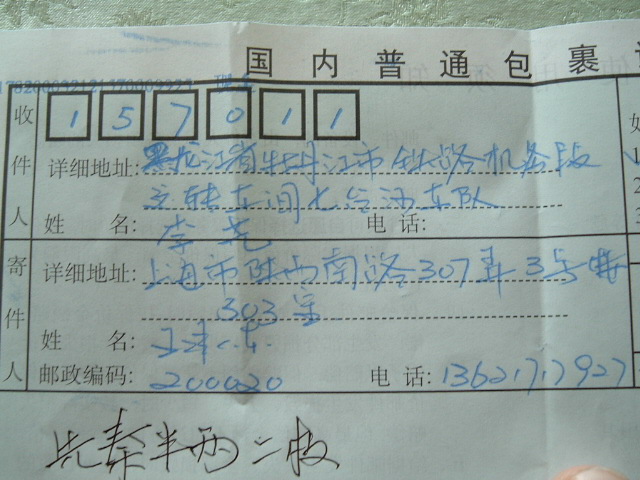 国内普通包裹
收件人
157011
详细地址:黑龙江省牡丹江市铁路机务段
运转车间七台河车队
姓名:李尧 电话:
寄件人
详细地址:上海市陕西南路307弄3号
303室
姓名:
邮政编码:200020 电话:13621717927
先秦半两二枚